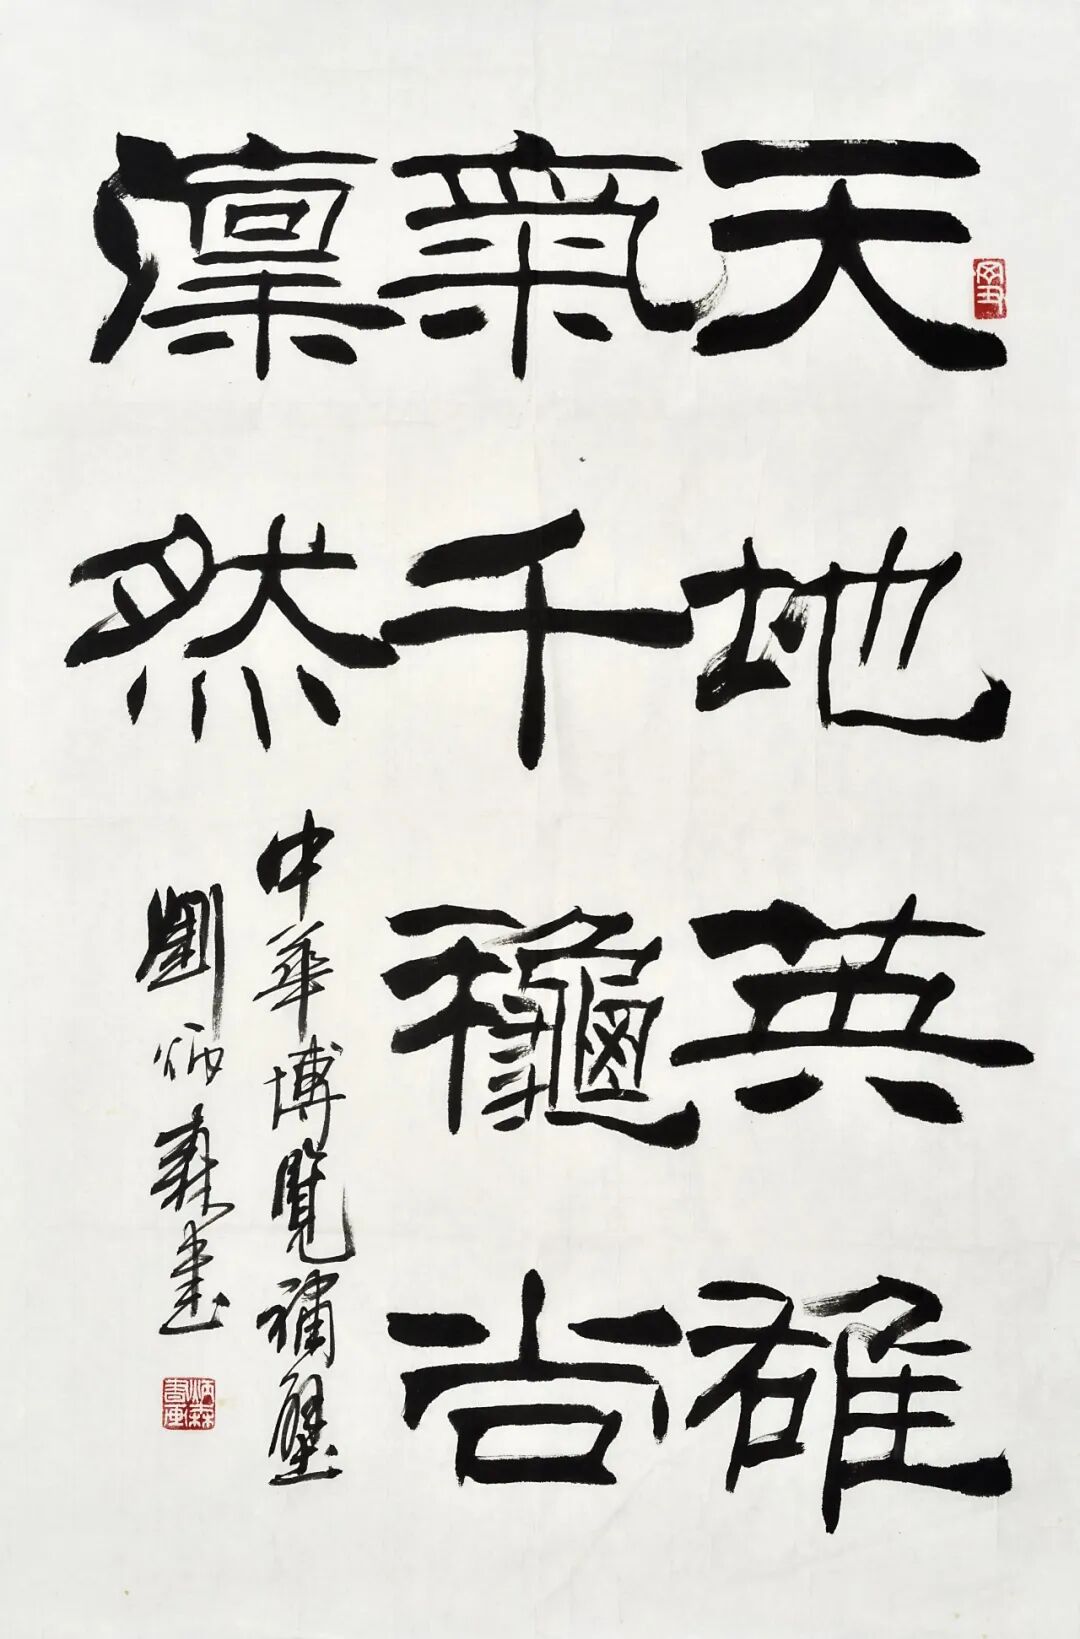 天地英雄
氣千龝尚
凜然
中華博覽補壁
劉炳森書
炳森書画